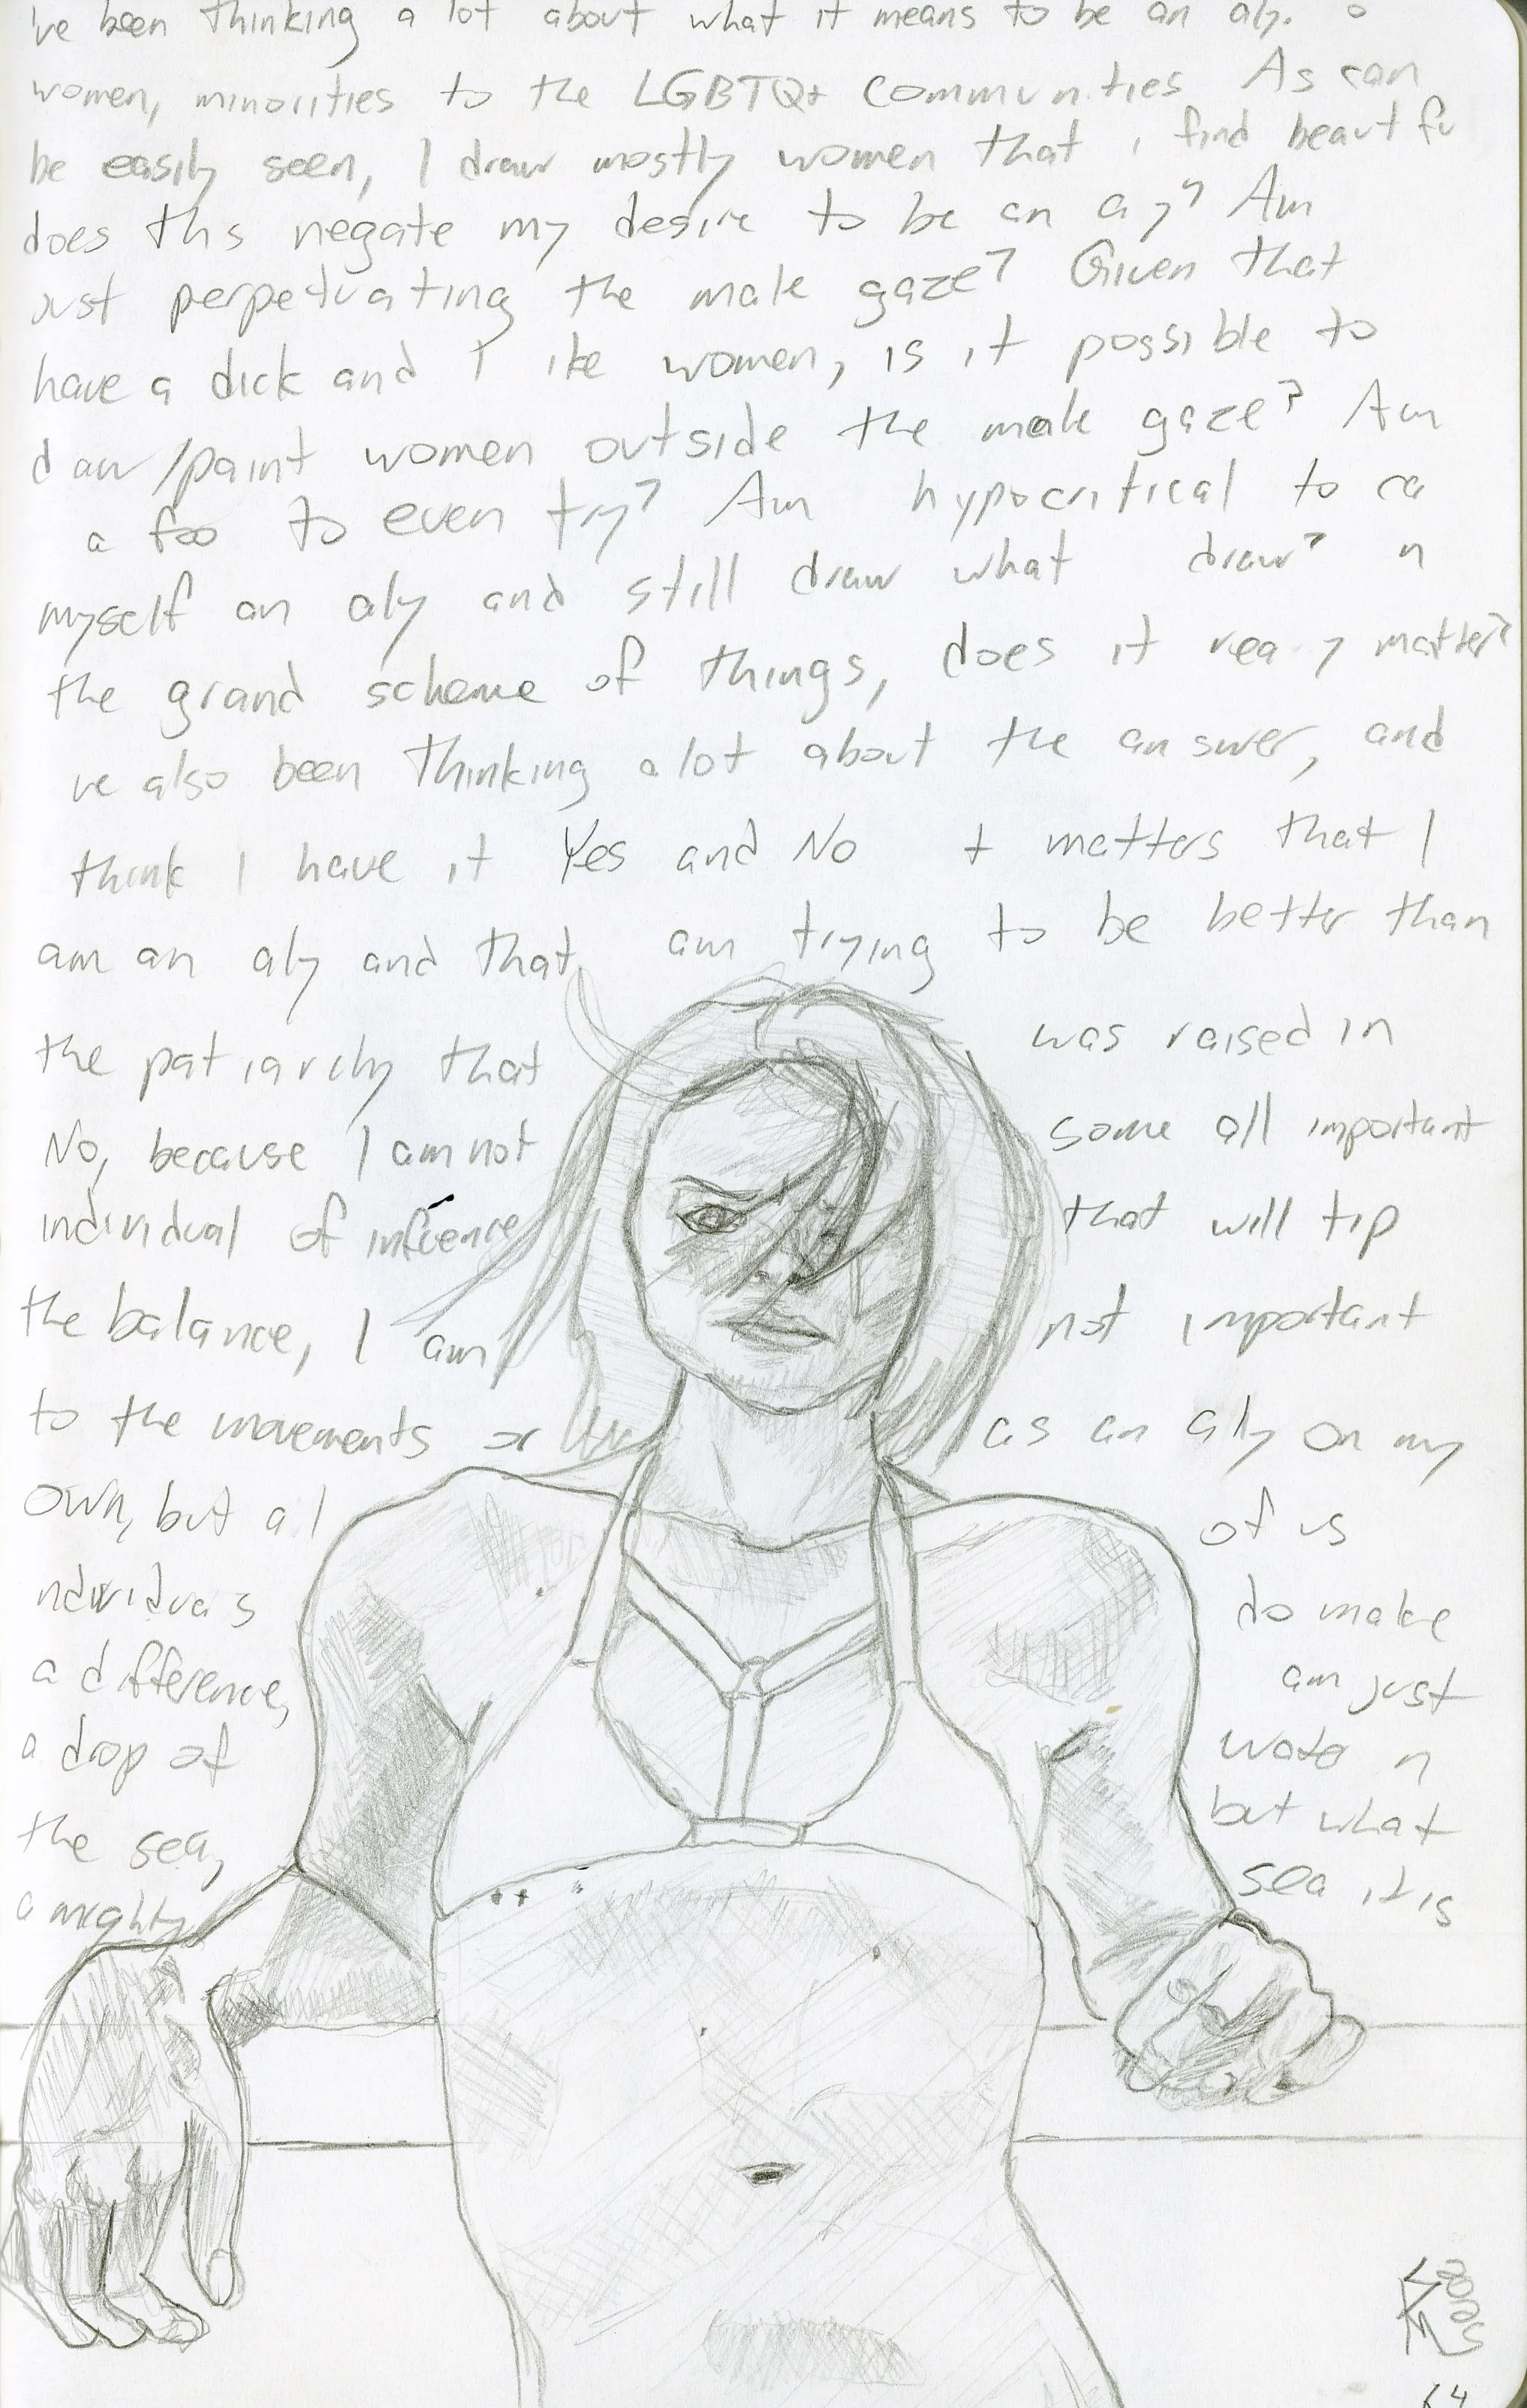 've been thinking a lot about what it means to be an aly. o
women, minorities to the LGBTQ+ communities As can
be easily seen, I draw mostly women that i find beautifu
does ths negate my desire to be an a y? Am
ust perpetuating the male gaze? Given that
have a dick and I ike women, is it possible to
draw/paint women outside the male gaze? Am
a foo to even try? Am hypocritical to ca
myself an aly and still draw what draw? n
the grand scheme of things, does it rea y matter?
've also been thinking a lot about the answer, and
think I have it Yes and No t matters that I
am an aly and that am trying to be better than
the patriarchy that was raised in
No, because I am not some all important
individual of infuence that will tip
the balance, I am not important
to the movements or as an ally on my
own, but al of us
ndividuas do make
a difference, am just
a drop of water n
the sea, but what
a mighty sea it is
64